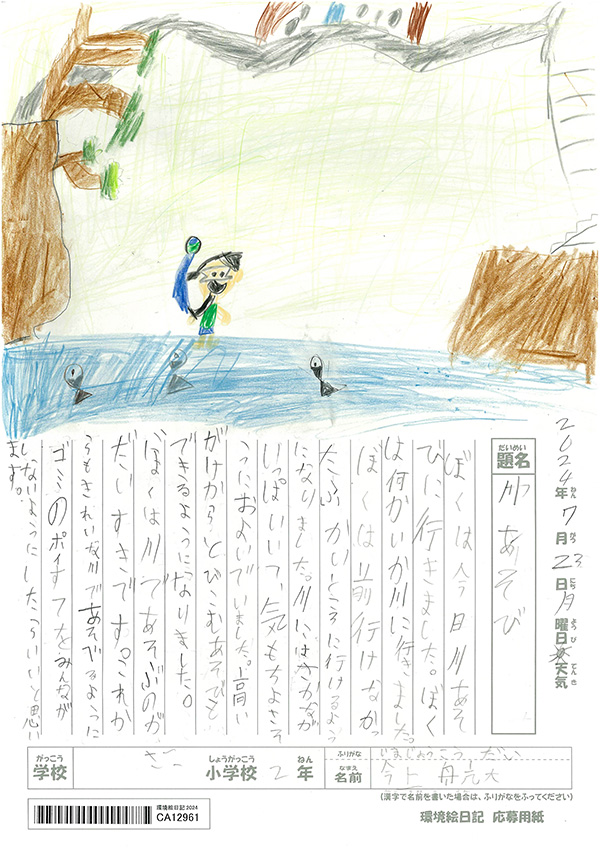 2024年7月23日月曜日天気
ねん がつ にち ようび てんき
だいめい
題名 川あそび
ぼくは今日川あそ
びに行きました。ぼく
は何かいか川に行きました。
ぼくは前行けなかっ
たふかいところに行けるよう
になりました。川にはさかなが
いっぱいいて、気もちよさそ
うにおよいでいました。高い
がけからとびこむあそびも
できるようになりました。
ぼくは川であそぶのが
だいすきです。これか
らもきれいな川であそべるように
ゴミのポイすてをみんなが
しないようにしたらいいと思い
ます。
がっこう しょうがっこう ねん ふりがな いまじょうこうだい
学校 小学校 2年 なまえ 名前 今上 航大
(漢字で名前を書いた場合は、ふりがなをふってください)
環境絵日記2024
CA12961
環境絵日記 応募用紙